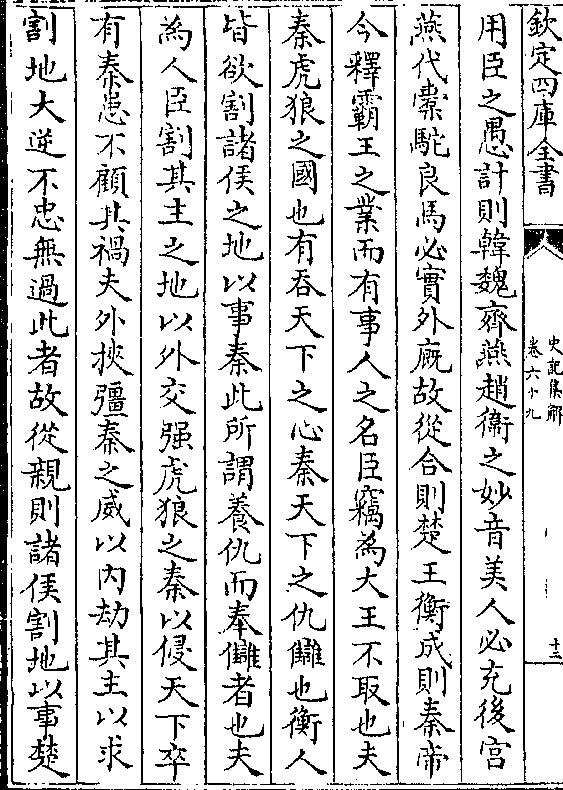 欽定四庫全書
史記集解
卷六十九
十三
用臣之愚計則韓魏齊燕趙衛之妙音美人必充後宫
燕代橐駝良馬必實外廐故從合則楚王衡成則秦帝
今釋霸王之業而有事人之名臣竊為大王不取也夫
秦虎狼之國也有吞天下之心秦天下之仇讎也衡人
皆欲割諸侯之地以事秦此所謂養仇而奉讎者也夫
為人臣割其主之地以外交强虎狼之秦以侵天下卒
有秦患不顧其禍夫外挾彊秦之威以内劫其主以求
割地大逆不忠無過此者故從親則諸侯割地以事楚